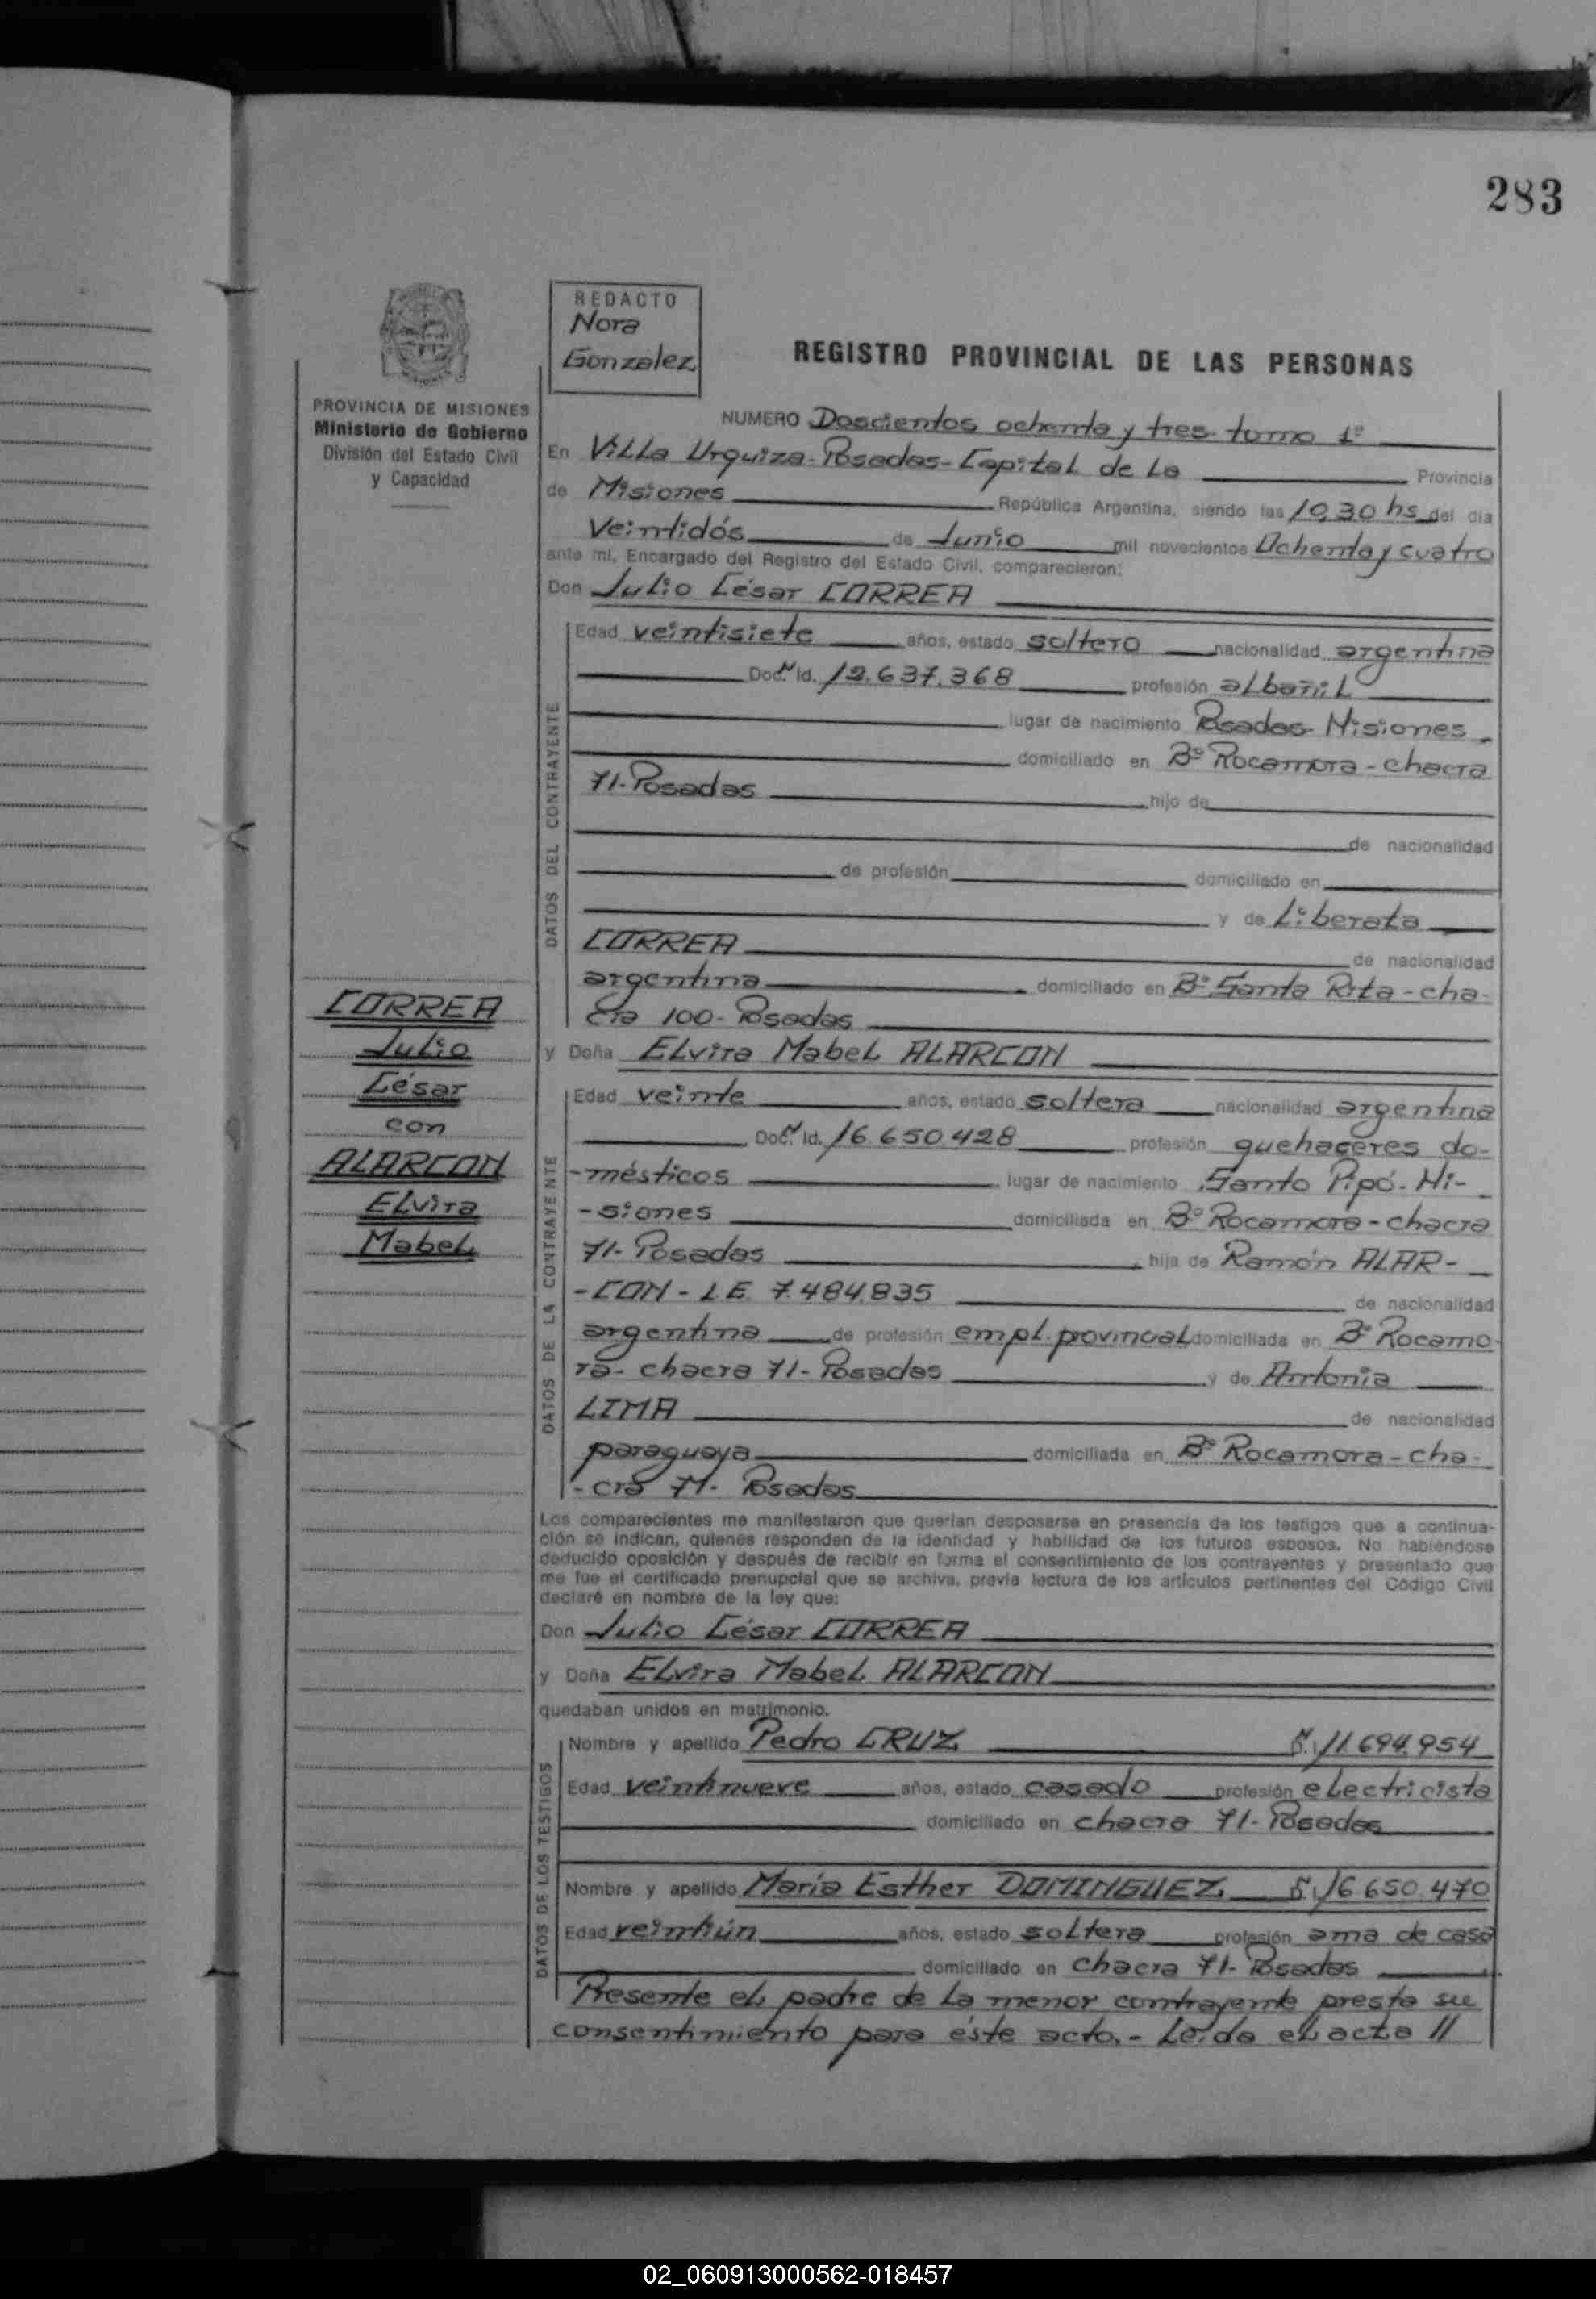 283
REDACTO
Nora
Gonzalez
REGISTRO PROVINCIAL DE LAS PERSONAS
PROVINCIA DE MISIONES
Ministerio de Gobierno
División del Estado Civil
y Capacidad
NUMERO Doscientos ochenta y tres tomo 1º
En Villa Urquiza-Posadas-Capital de la Provincia
de Misiones República Argentina, siendo las 10,30 hs del día
Veintidós de Junio mil novecientos Ochenta y cuatro
ante mí, Encargado del Registro del Estado Civil, comparecieron:
Don Julio César CORREA
DATOS DEL CONTRAYENTE
Edad veintisiete años, estado soltero nacionalidad argentina
Doc. Id. 12.637.368 profesión albañil
lugar de nacimiento Posadas-Misiones
domiciliado en Bº Rocamora-chacra
71-Posadas hijo de
de nacionalidad
de profesión domiciliado en
y de Liberata
CORREA de nacionalidad
argentina domiciliado en Bº Santa Rita-cha-
cra 100-Posadas
CORREA
Julio
César
con
ALARCON
Elvira
Mabel
y Doña Elvira Mabel ALARCON
DATOS DE LA CONTRAYENTE
Edad veinte años, estado soltera nacionalidad argentina
Doc. Id. 16.650.428 profesión quehaceres do-
-mésticos lugar de nacimiento Santo Pipó-Mi-
-siones domiciliada en Bº Rocamora-chacra
71-Posadas hija de Ramón ALAR-
-CON-L.E. 7.484.835 de nacionalidad
argentina de profesión empl. provincial domiciliada en Bº Rocamo-
ra-chacra 71-Posadas y de Antonia
LIMA de nacionalidad
paraguaya domiciliada en Bº Rocamora-cha-
-cra 71-Posadas
Los comparecientes me manifestaron que querían desposarse en presencia de los testigos que a continua-
ción se indican, quienes responden de la identidad y habilidad de los futuros esposos. No habiéndose
deducido oposición y después de recibir en forma el consentimiento de los contrayentes y presentado que
me fue el certificado prenupcial que se archiva, previa lectura de los artículos pertinentes del Código Civil
declaré en nombre de la ley que:
Don Julio César CORREA
y Doña Elvira Mabel ALARCON
quedaban unidos en matrimonio.
DATOS DE LOS TESTIGOS
Nombre y apellido Pedro CRUZ 11.694.954
Edad veintinueve años, estado casado profesión electricista
domiciliado en chacra 71-Posadas
Nombre y apellido María Esther DOMINGUEZ 16.650.470
Edad veintiún años, estado soltera profesión ama de casa
domiciliado en chacra 71-Posadas
Presente el padre de la menor contrayente presta su
consentimiento para éste acto.- Leída el acta //
02_060913000562-018457